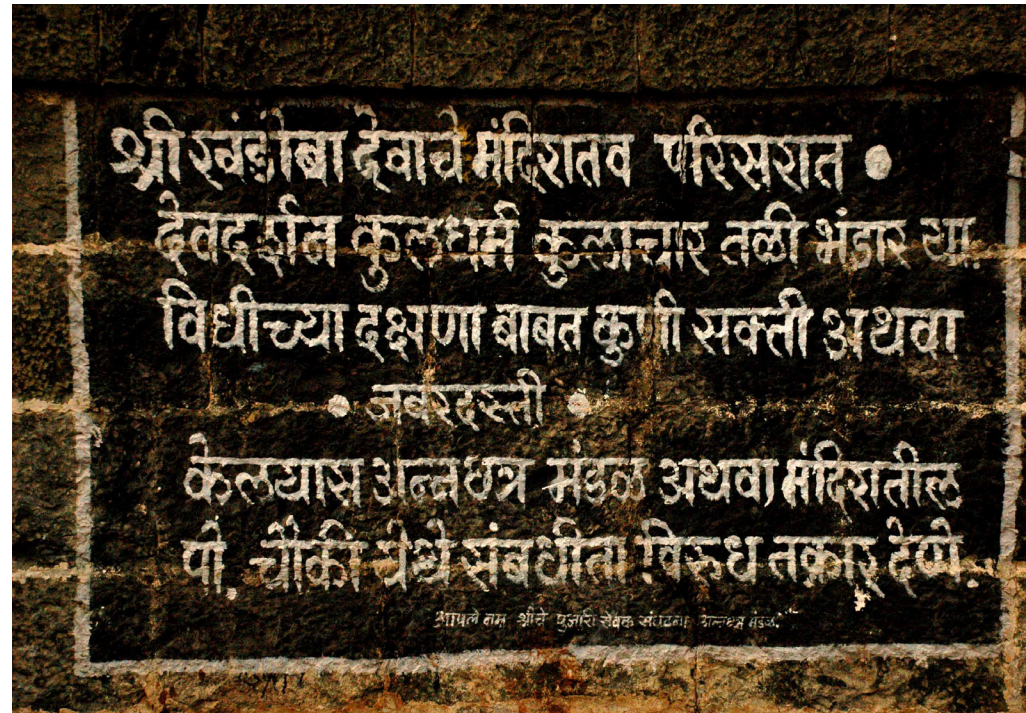 श्री खंडोबा देवाचे मंदिरातव परिसरात •
देवदर्शन कुलधर्म कुळाचार तळी भंडार या.
विधीच्या दक्षणा बाबत कुणी सक्ती अथवा
• जबरदस्ती •
केलयास अन्नछत्र मंडळ अथवा मंदिरातील
पो. चौकी येथे संबधीता विरुध तक्रार देणे.
आपले नम्र श्रीचे पुजारी सेवक संघटना अन्नछत्र मंडळ.